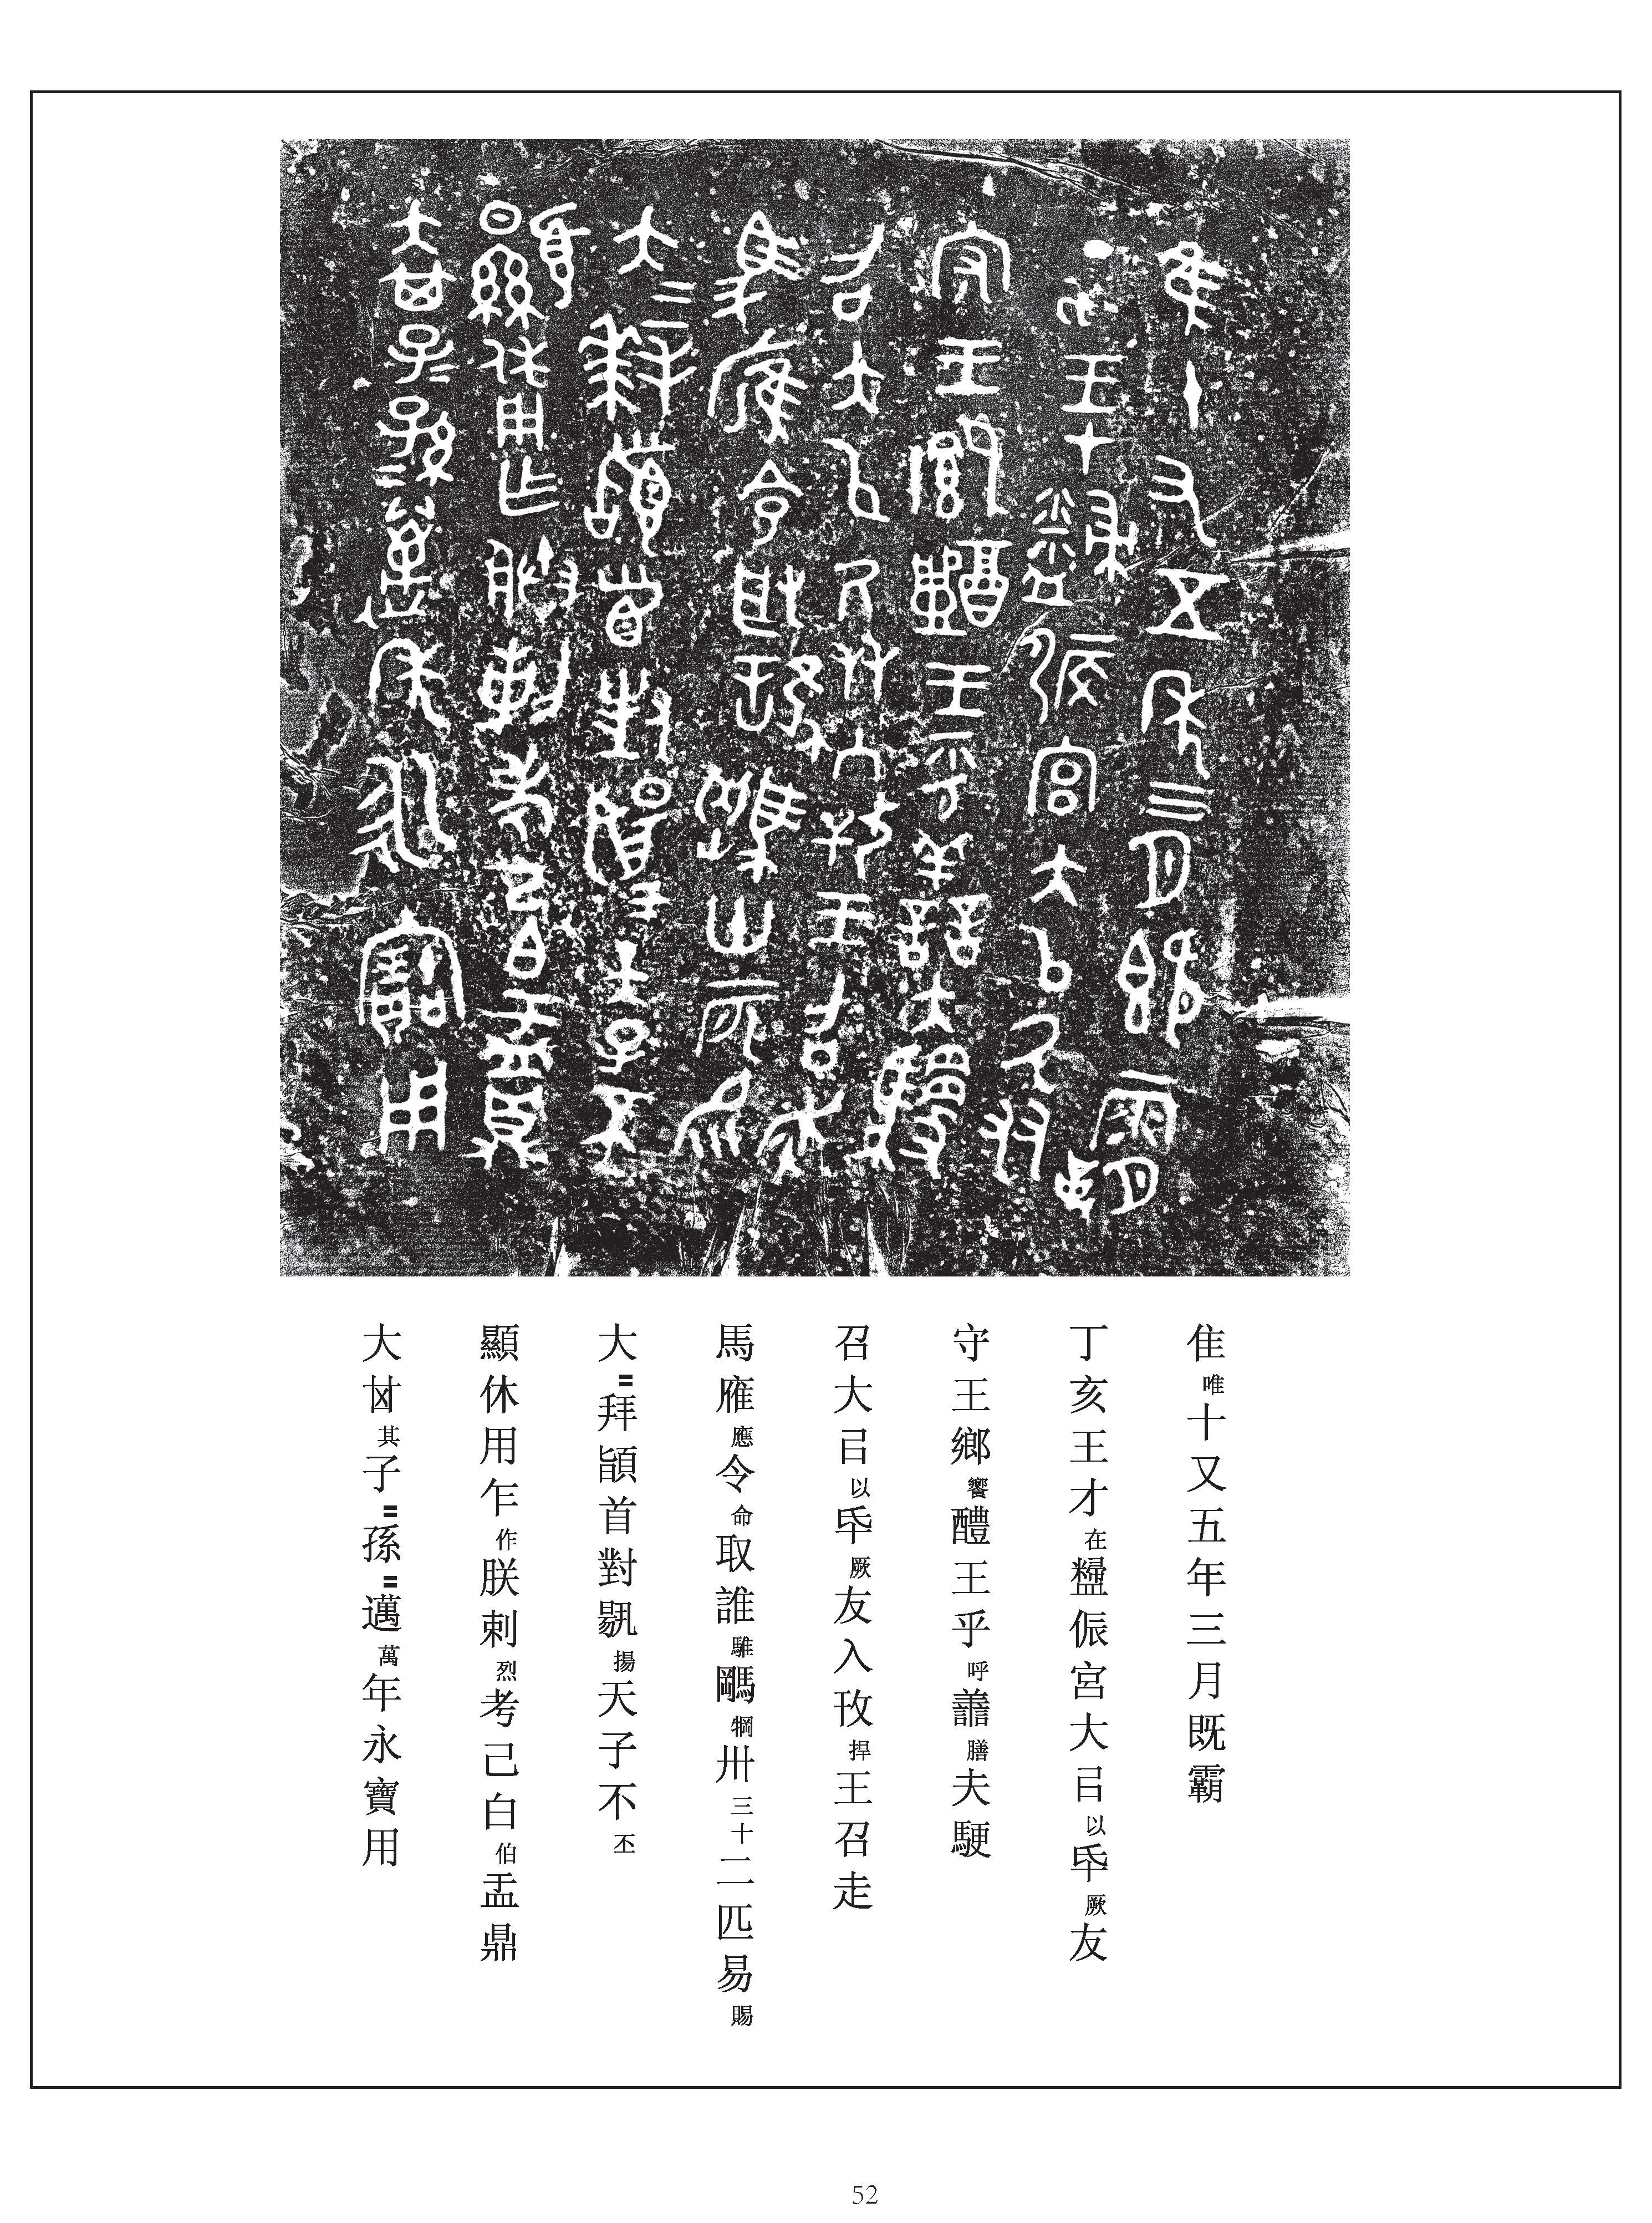 隹唯十又五年三月既霸
丁亥王才在侲宮大㠯以氒厥友
守王鄉饗醴王乎呼譱膳夫
召大㠯以氒厥友入攼捍王召走
馬䧹應令命取誰騅犅卅三十二匹易賜
大〓拜𩒨首對揚天子不丕
顯休用乍作朕剌烈考己白伯盂鼎
大𠀠其子〓孫〓邁萬年永寶用
52